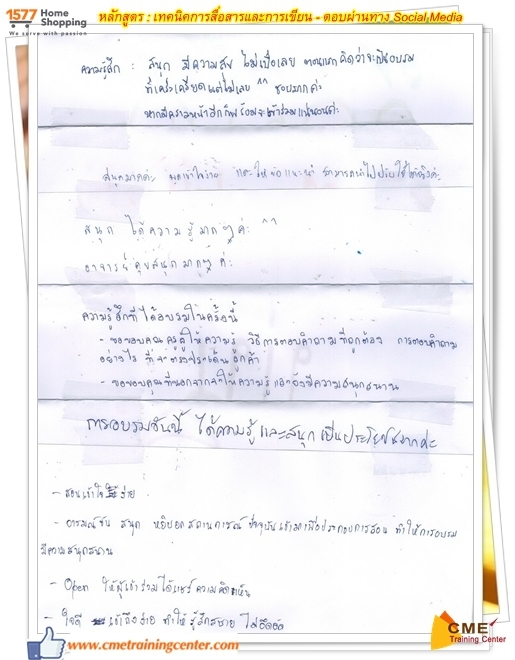 1577 Home Shopping
We serve with passion
หลักสูตร : เทคนิคการสื่อสารและการเขียน - ตอบผ่านทาง Social Media
ความรู้สึก : สนุก มีความสุข ไม่เบื่อเลย ตอนแรกคิดว่าจะเป็นอบรม
ที่เคร่งเครียดแต่ไม่เลย ^^ ชอบมากค่ะ
หากมีคราวหน้าอีกก็พร้อมจะเข้าร่วมแน่นอนค่ะ
สนุกมากค่ะ พูดเข้าใจง่าย และให้ข้อแนะนำ สามารถนำไปปรับใช้ได้จริงค่ะ
สนุก ได้ความรู้มากๆ ค่ะ ^^
อาจารย์คุยสนุกมากๆ ค่ะ
ความรู้สึกที่ได้อบรมในครั้งนี้
- ขอขอบคุณครูผู้ให้ความรู้ วิธีการตอบคำถามที่ถูกต้อง การตอบคำถาม
อย่างไร ที่จะตรงประเด็นลูกค้า
- ขอขอบคุณที่นอกจากจะให้ความรู้ และยังมีความสนุกสนาน
การอบรมวันนี้ ได้ความรู้และสนุกเป็นประโยชน์มากค่ะ
- สอนเข้าใจง่าย
- อารมณ์ขัน สนุก หยิบยกสถานการณ์ปัจจุบันเข้ามาเพื่อประกอบการสอน ทำให้การอบรม
มีความสนุกสนาน
- Open ให้ผู้เข้าร่วมได้แชร์ความคิดเห็น
- ใจดี เข้าถึงง่าย ทำให้รู้สึกสบาย ไม่อึดอัด
www.cmetrainingcenter.com
CME
Training Center